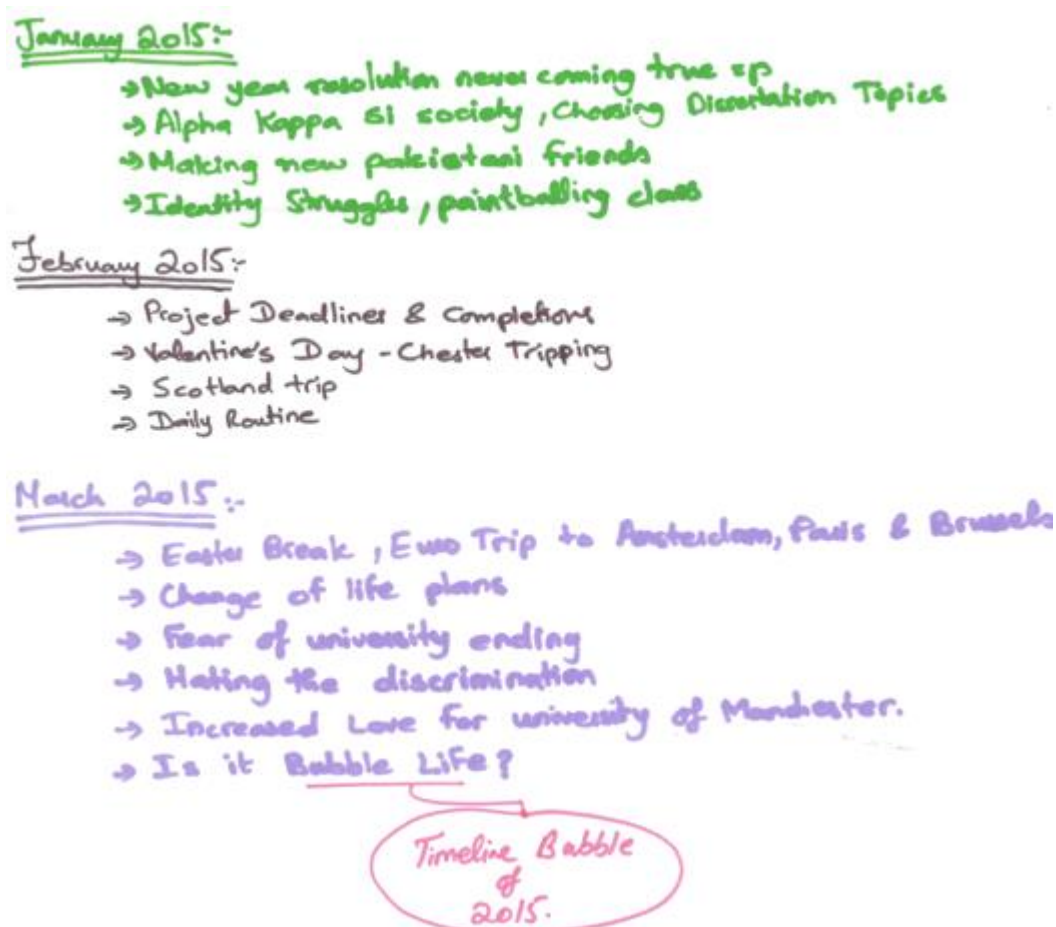 January 2015:-
→ New year resolution never coming true =p
→ Alpha Kappa Si society, Choosing Dissertation Topics
→ Making new pakistani friends
→ Identity Struggles, paintballing class
February 2015:-
→ Project Deadlines & Completions
→ Valentine's Day - Chester Tripping
→ Scotland trip
→ Daily Routine
March 2015:-
→ Easter Break, Euro Trip to Amsterdam, Paris & Brussels
→ Change of life plans
→ Fear of university ending
→ Hating the discrimination
→ Increased Love for university of Manchester.
→ Is it Babble Life?
Timeline Babble
of
2015.